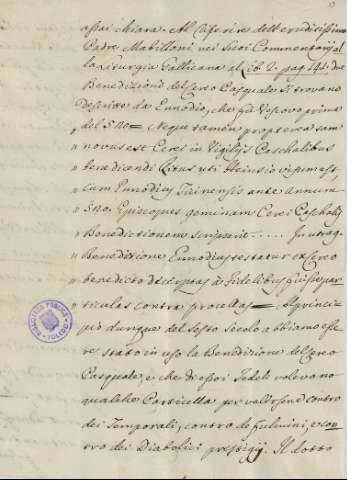 assai chiara. Al riferire dell'eruditissimo
Padre Mabilloni, nei suoi Commentarj al
la Liturgia Gallicana al Lib. 2. pag. 141. due
Benedizioni del Cereo Pasquale si trovano
descritte da Ennodio, che fù Vescovo prima
del 520 = Neque tamen propterea tam
novus est Cerei in Vigilijs Paschalibus
benedicendi Ritus uti Heinsio visum est,
cum Ennodius Ticinensis ante annum
520. Episcopus geminam Cerei Paschalis
Benedictionem scripserit ..... In utraq.
Benedictione Ennodius testatur ex Cereo
benedicto decerptas à Fidelibus fuisse par
ticulas contra procellas = Al princi
pio dunque del Sesto Secolo abbiamo esse
re stato in uso la Benedizione del Cereo
Pasquale, e che di essoi Fedeli volevano
qualche Particella per valersene contro
dei Temporali, contro de Fulmini, e con
tro dei Diabolici prestigij. Il dotto
BIBLIOTECA PUBLICA
TOLEDO